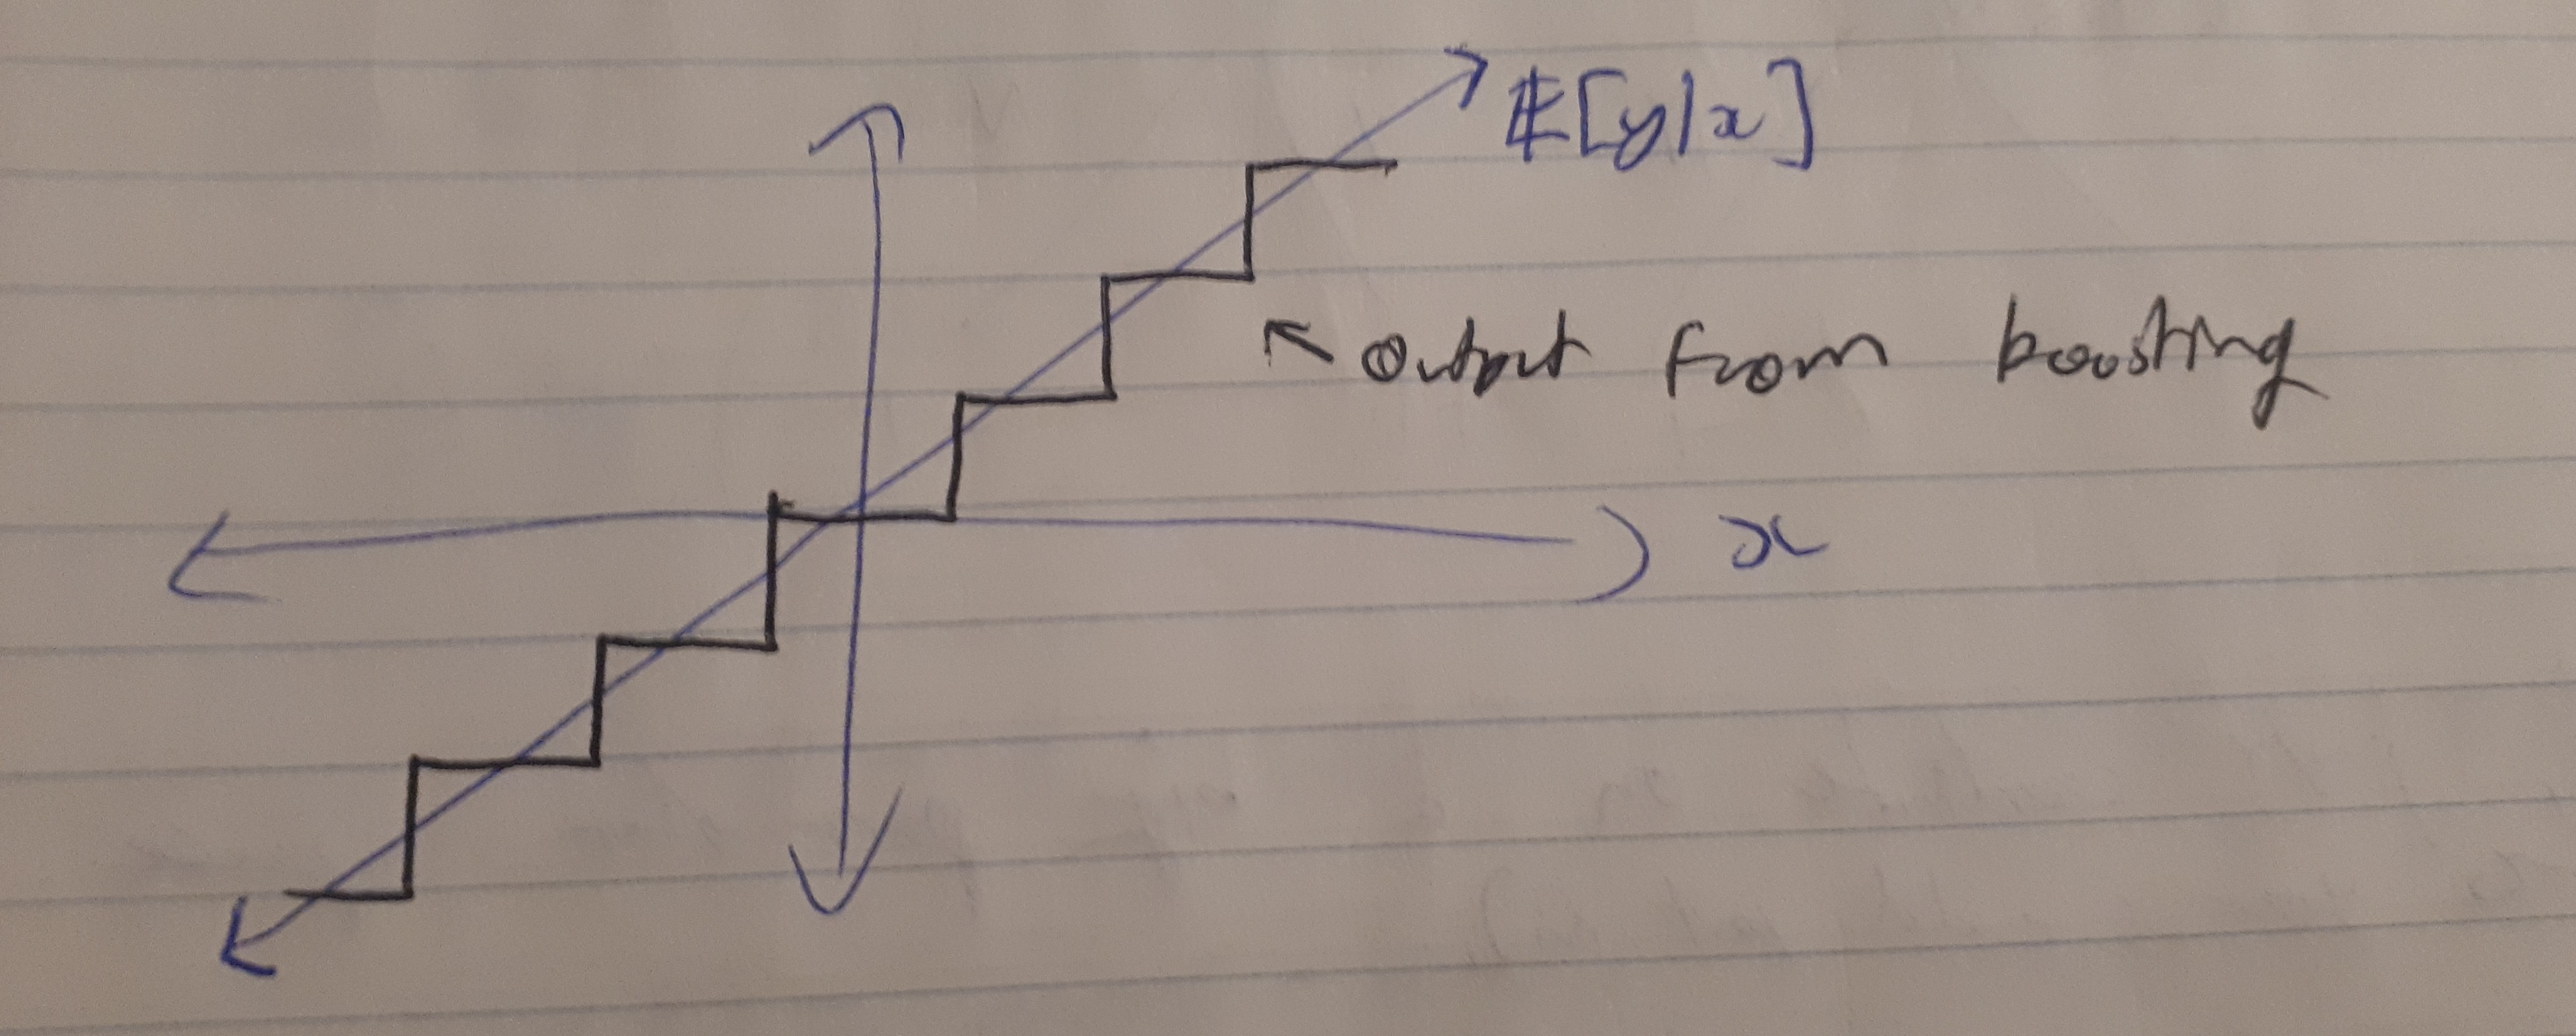 𝔼[y|x]
output from boosting
x